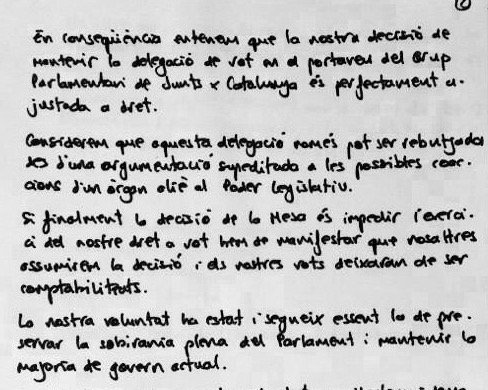 En conseqüència entenem que la nostra decisió de
mantenir la delegació de vot en el portaveu del Grup
Parlamentari de Junts x Catalunya és perfectament a-
justada a dret.
Considerem que aquesta delegació només pot ser rebutjada
des d'una argumentació supeditada a les possibles coac-
cions d'un òrgan aliè al Poder Legislatiu.
Si finalment la decisió de la Mesa és impedir l'exerci-
ci del nostre dret a vot hem de manifestar que nosaltres
assumirem la decisió i els nostres vots deixaran de ser
comptabilitzats.
La nostra voluntat ha estat i segueix essent la de pre-
servar la sobirania plena del Parlament i mantenir la
majoria de govern actual.